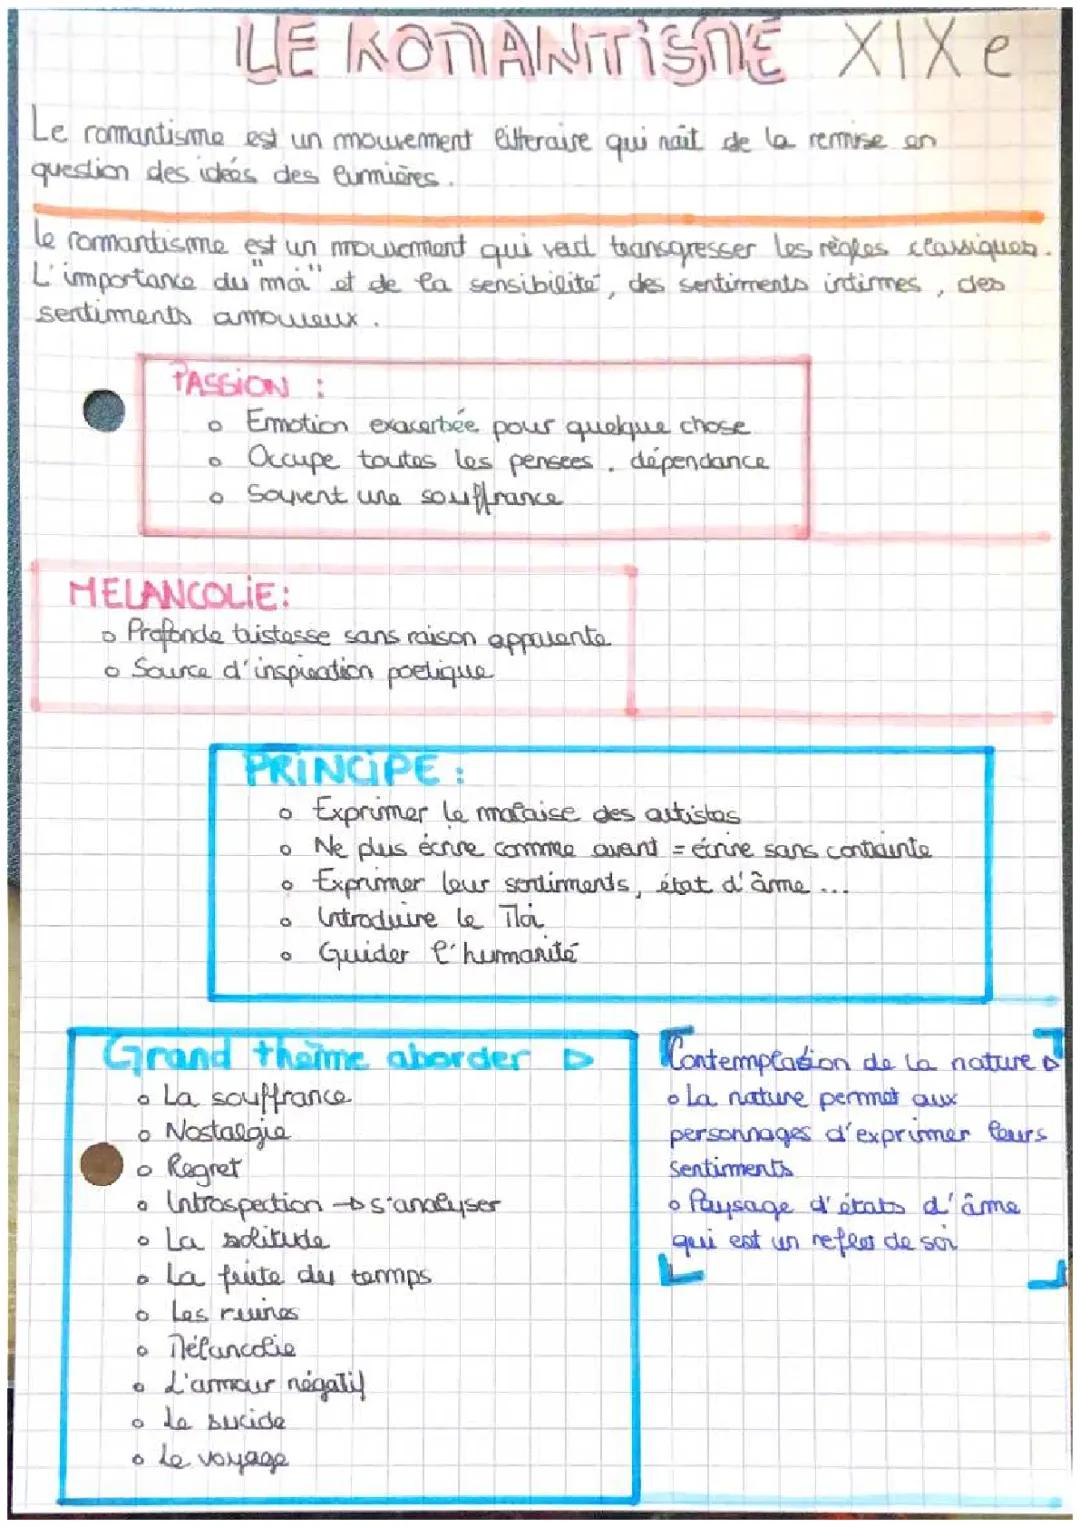 LE ROMANTISME XIXe
Le romantisme est un mouvement litteraire qui naît de la remise en
question des idées des lumières.
le romantisme est un mouvement qui veut transgresser les règles classiques.
L'importance du "moi" et de la sensibilité, des sentiments intimes, des
sentiments amoureux.
PASSION :
o Emotion exacerbée pour quelque chose
o Occupe toutes les pensees. dépendance
o Souvent une souffrance
MELANCOLIE:
o Profonde tristesse sans raison apparente
o Source d'inspiration poetique
PRINCIPE :
o Exprimer le malaise des artistes
o Ne plus écrire comme avant = écrire sans contrainte
o Exprimer leur sentiments, état d'âme ...
o Introduire le Moi
o Guider l'humanité
Grand theîme aborder ▷
o La souffrance
o Nostalgie
o Regret
o Introspection → s'analyser
o La solitude
o La fuite du temps
o Les ruines
o Mélancolie
o L'amour négatif
o Le sucide
o Le voyage
Contemplation de la nature ▷
o La nature permet aux
personnages d'exprimer leurs
sentiments
o Paysage d'états d'âme
qui est un reflet de soi